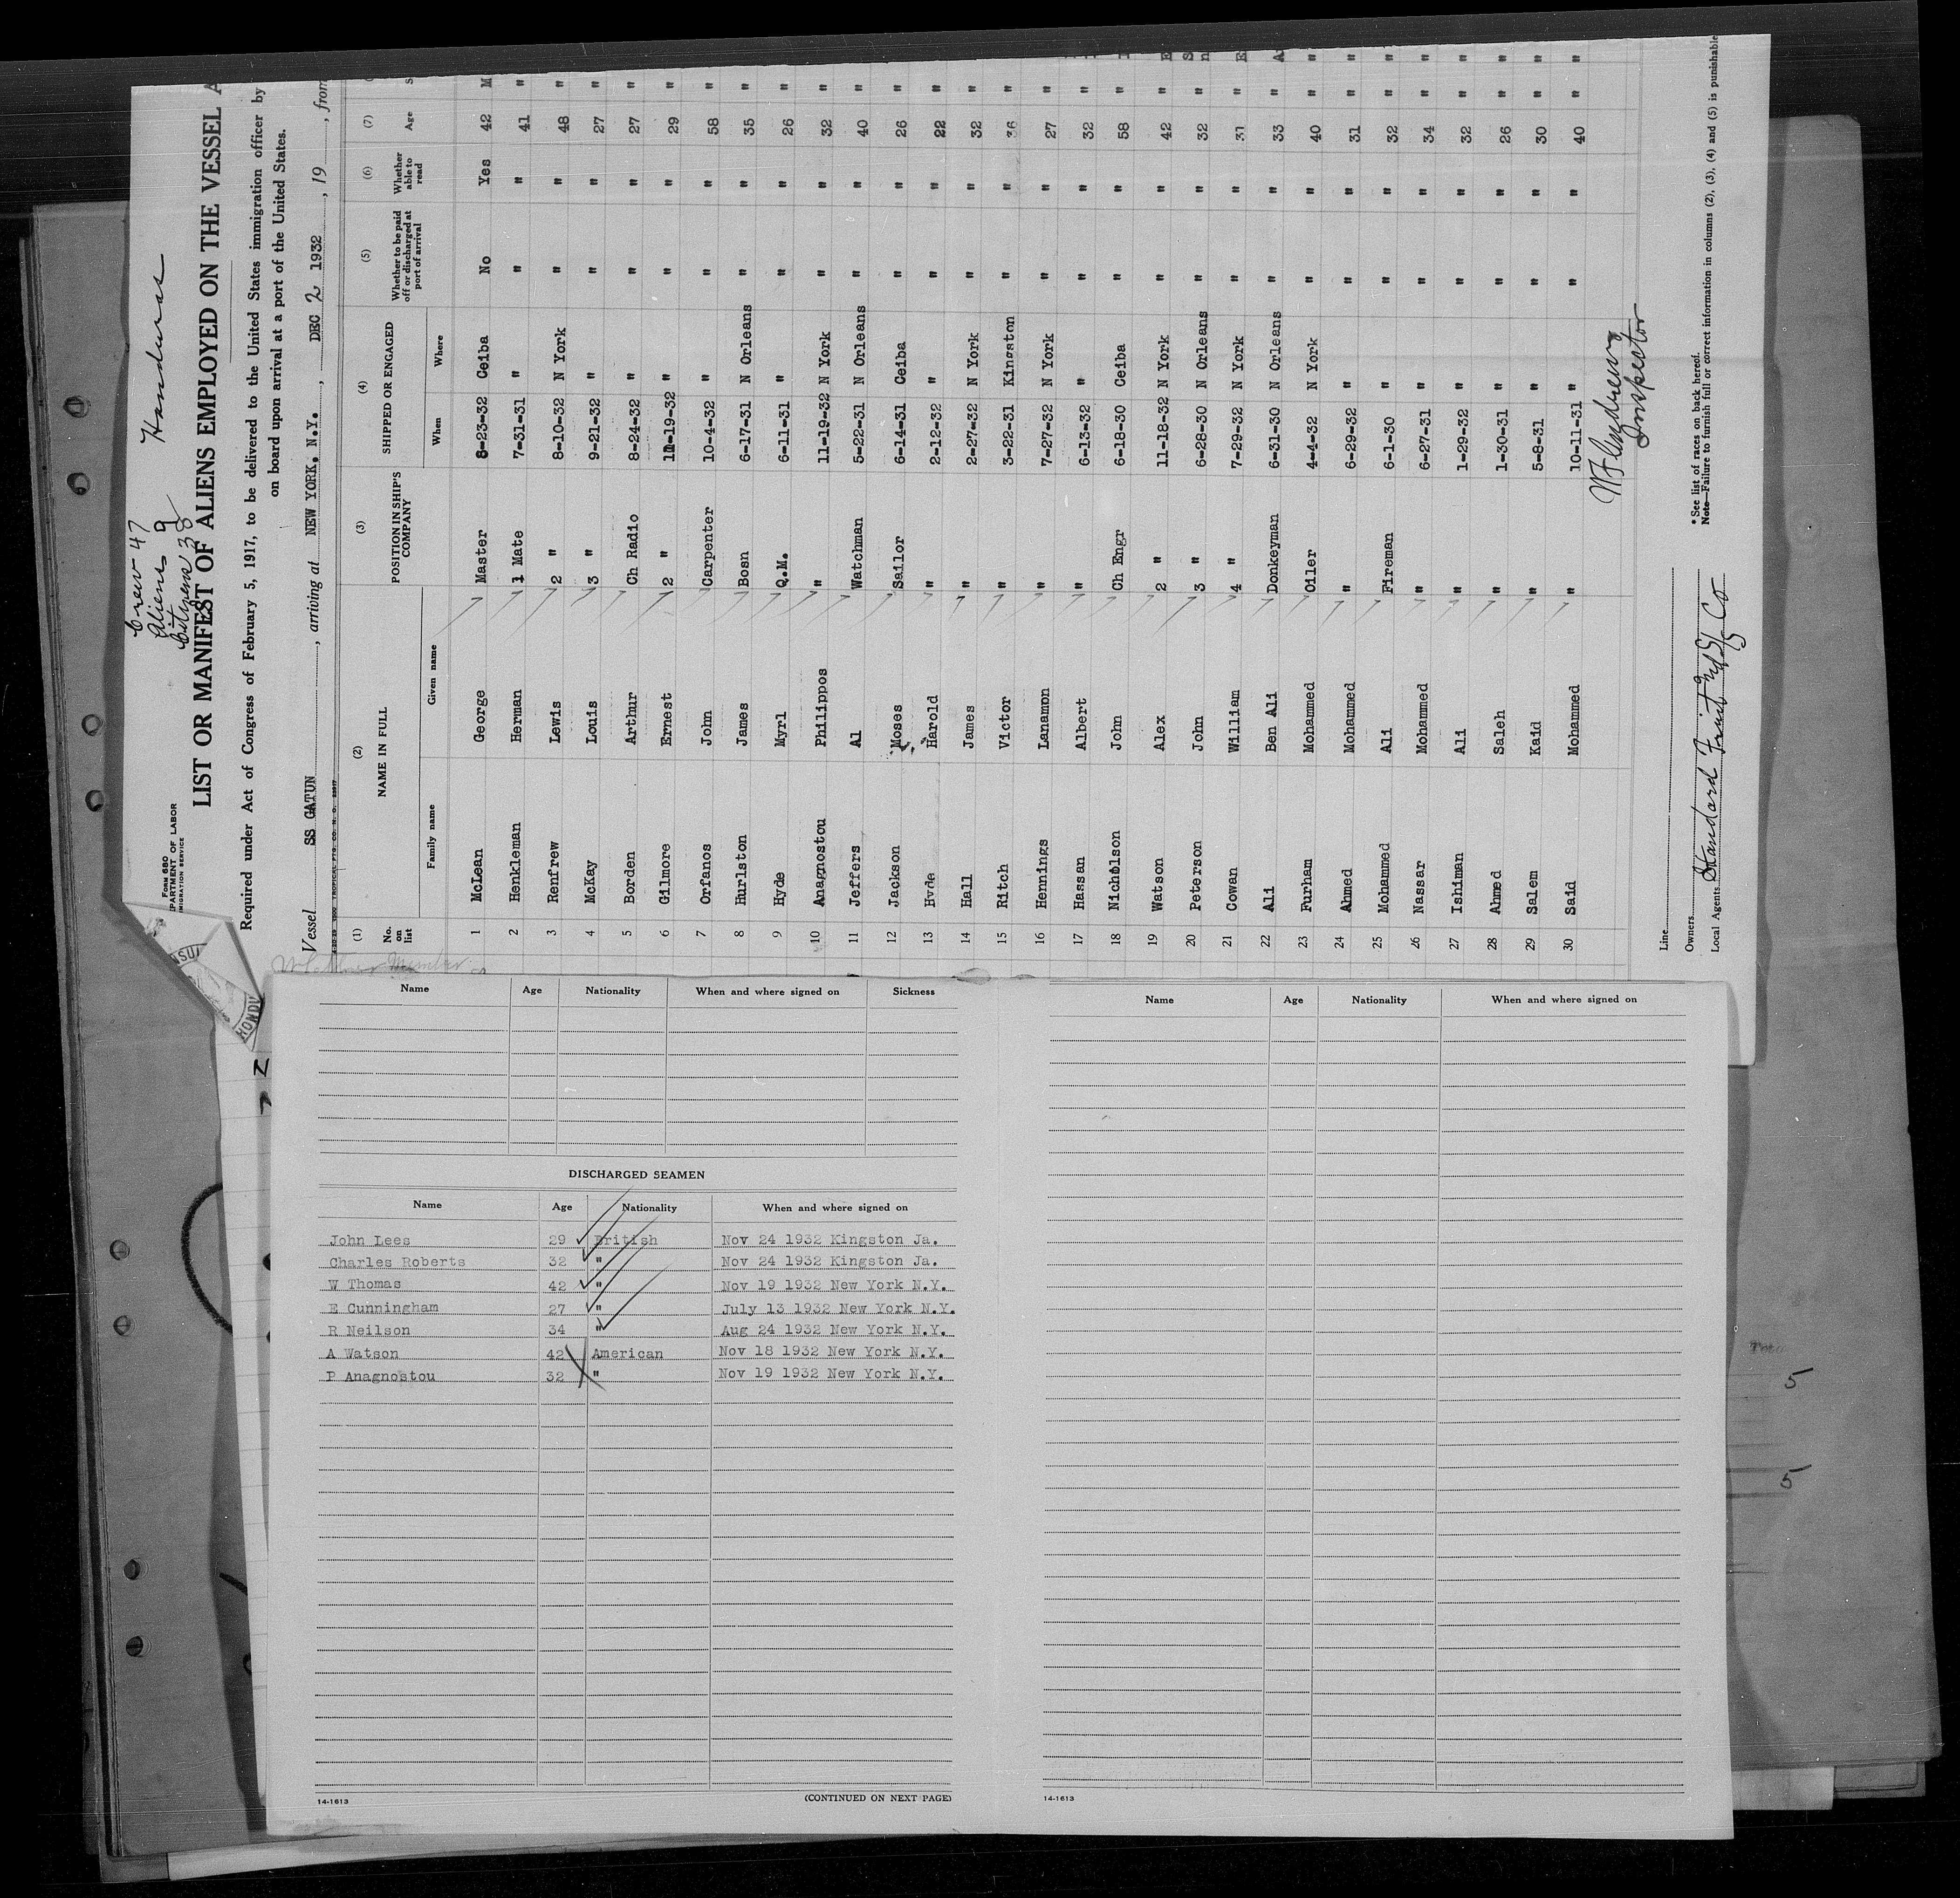 Crew 47
Aliens 9
Citizens 38
Honduras
FORM 680
DEPARTMENT OF LABOR
IMMIGRATION SERVICE
LIST OR MANIFEST OF ALIENS EMPLOYED ON THE VESSEL A
Required under Act of Congress of February 5, 1917, to be delivered to the United States immigration officer by
on board upon arrival at a port of the United States.
Vessel SS GATUN, arriving at NEW YORK. N.Y., DEC 2 1932, 19, from
(1) (2) (3) (4) (5) (6) (7)
No. on list NAME IN FULL POSITION IN SHIP'S COMPANY SHIPPED OR ENGAGED Whether to be paid off or discharged at port of arrival Whether able to read Age S
Family name Given name When Where
1 McLean George Master 8-23-32 Ceiba No Yes 42 M
2 Henkleman Herman 1 Mate 7-31-31 " " " 41 "
3 Renfrew Lewis 2 " 8-10-32 N York " " 48 "
4 McKay Louis 3 " 9-21-32 " " " 27 "
5 Borden Arthur Ch Radio 8-24-32 " " " 27 "
6 Gilmore Ernest 2 " 11-19-32 " " " 29 "
7 Orfanos John Carpenter 10-4-32 " " " 58 "
8 Hurlston James Bosn 6-17-31 N Orleans " " 35 "
9 Hyde Myrl Q.M. 6-11-31 " " " 26 "
10 Anagnostou Philippos " 11-19-32 N York " " 32 "
11 Jeffers Al Watchman 5-22-31 N Orleans " " 40 "
12 Jackson Moses Sailor 6-14-31 Ceiba " " 26 "
13 Hyde Harold " 2-12-32 " " " 22 "
14 Hall James " 2-27-32 N York " " 32 "
15 Ritch Victor " 3-22-31 Kingston " " 36 "
16 Hennings Lanamon " 7-27-32 N York " " 27 "
17 Hassan Albert " 6-13-32 " " " 32 "
18 Nicholson John Ch Engr 6-18-30 Ceiba " " 58 "
19 Watson Alex 2 " 11-18-32 N York " " 42 "
20 Peterson John 3 " 6-28-30 N Orleans " " 32 "
21 Cowan William 4 " 7-29-32 N York " " 31 "
22 Ali Ben Ali Donkeyman 6-31-30 N Orleans " " 33 "
23 Furham Mohammed Oiler 4-4-32 N York " " 40 "
24 Ahmed Mohammed " 6-29-32 " " " 31 "
25 Mohammed Ali Fireman 6-1-30 " " " 32 "
26 Nassar Mohammed " 6-27-31 " " " 34 "
27 Ishiman Ali " 1-29-32 " " " 32 "
28 Ahmed Saleh " 1-30-31 " " " 26 "
29 Salem Kaid " 5-8-31 " " " 30 "
30 Said Mohammed " 10-11-31 " " " 40 "
Inspector
Line
Owners
Local Agents Standard Fruit & SS Co
* See list of races on back hereof.
Note—Failure to furnish full or correct information in columns (2), (3), (4) and (5) is punishable
Name Age Nationality When and where signed on Sickness
DISCHARGED SEAMEN
Name Age Nationality When and where signed on
John Lees 29 British Nov 24 1932 Kingston Ja.
Charles Roberts 32 " Nov 24 1932 Kingston Ja.
W Thomas 42 " Nov 19 1932 New York N.Y.
E Cunningham 27 " July 13 1932 New York N.Y.
R Neilson 34 " Aug 24 1932 New York N.Y.
A Watson 42 American Nov 18 1932 New York N.Y.
P Anagnostou 32 " Nov 19 1932 New York N.Y.
14-1613
(CONTINUED ON NEXT PAGE)
Name Age Nationality When and where signed on
14-1613
5
5